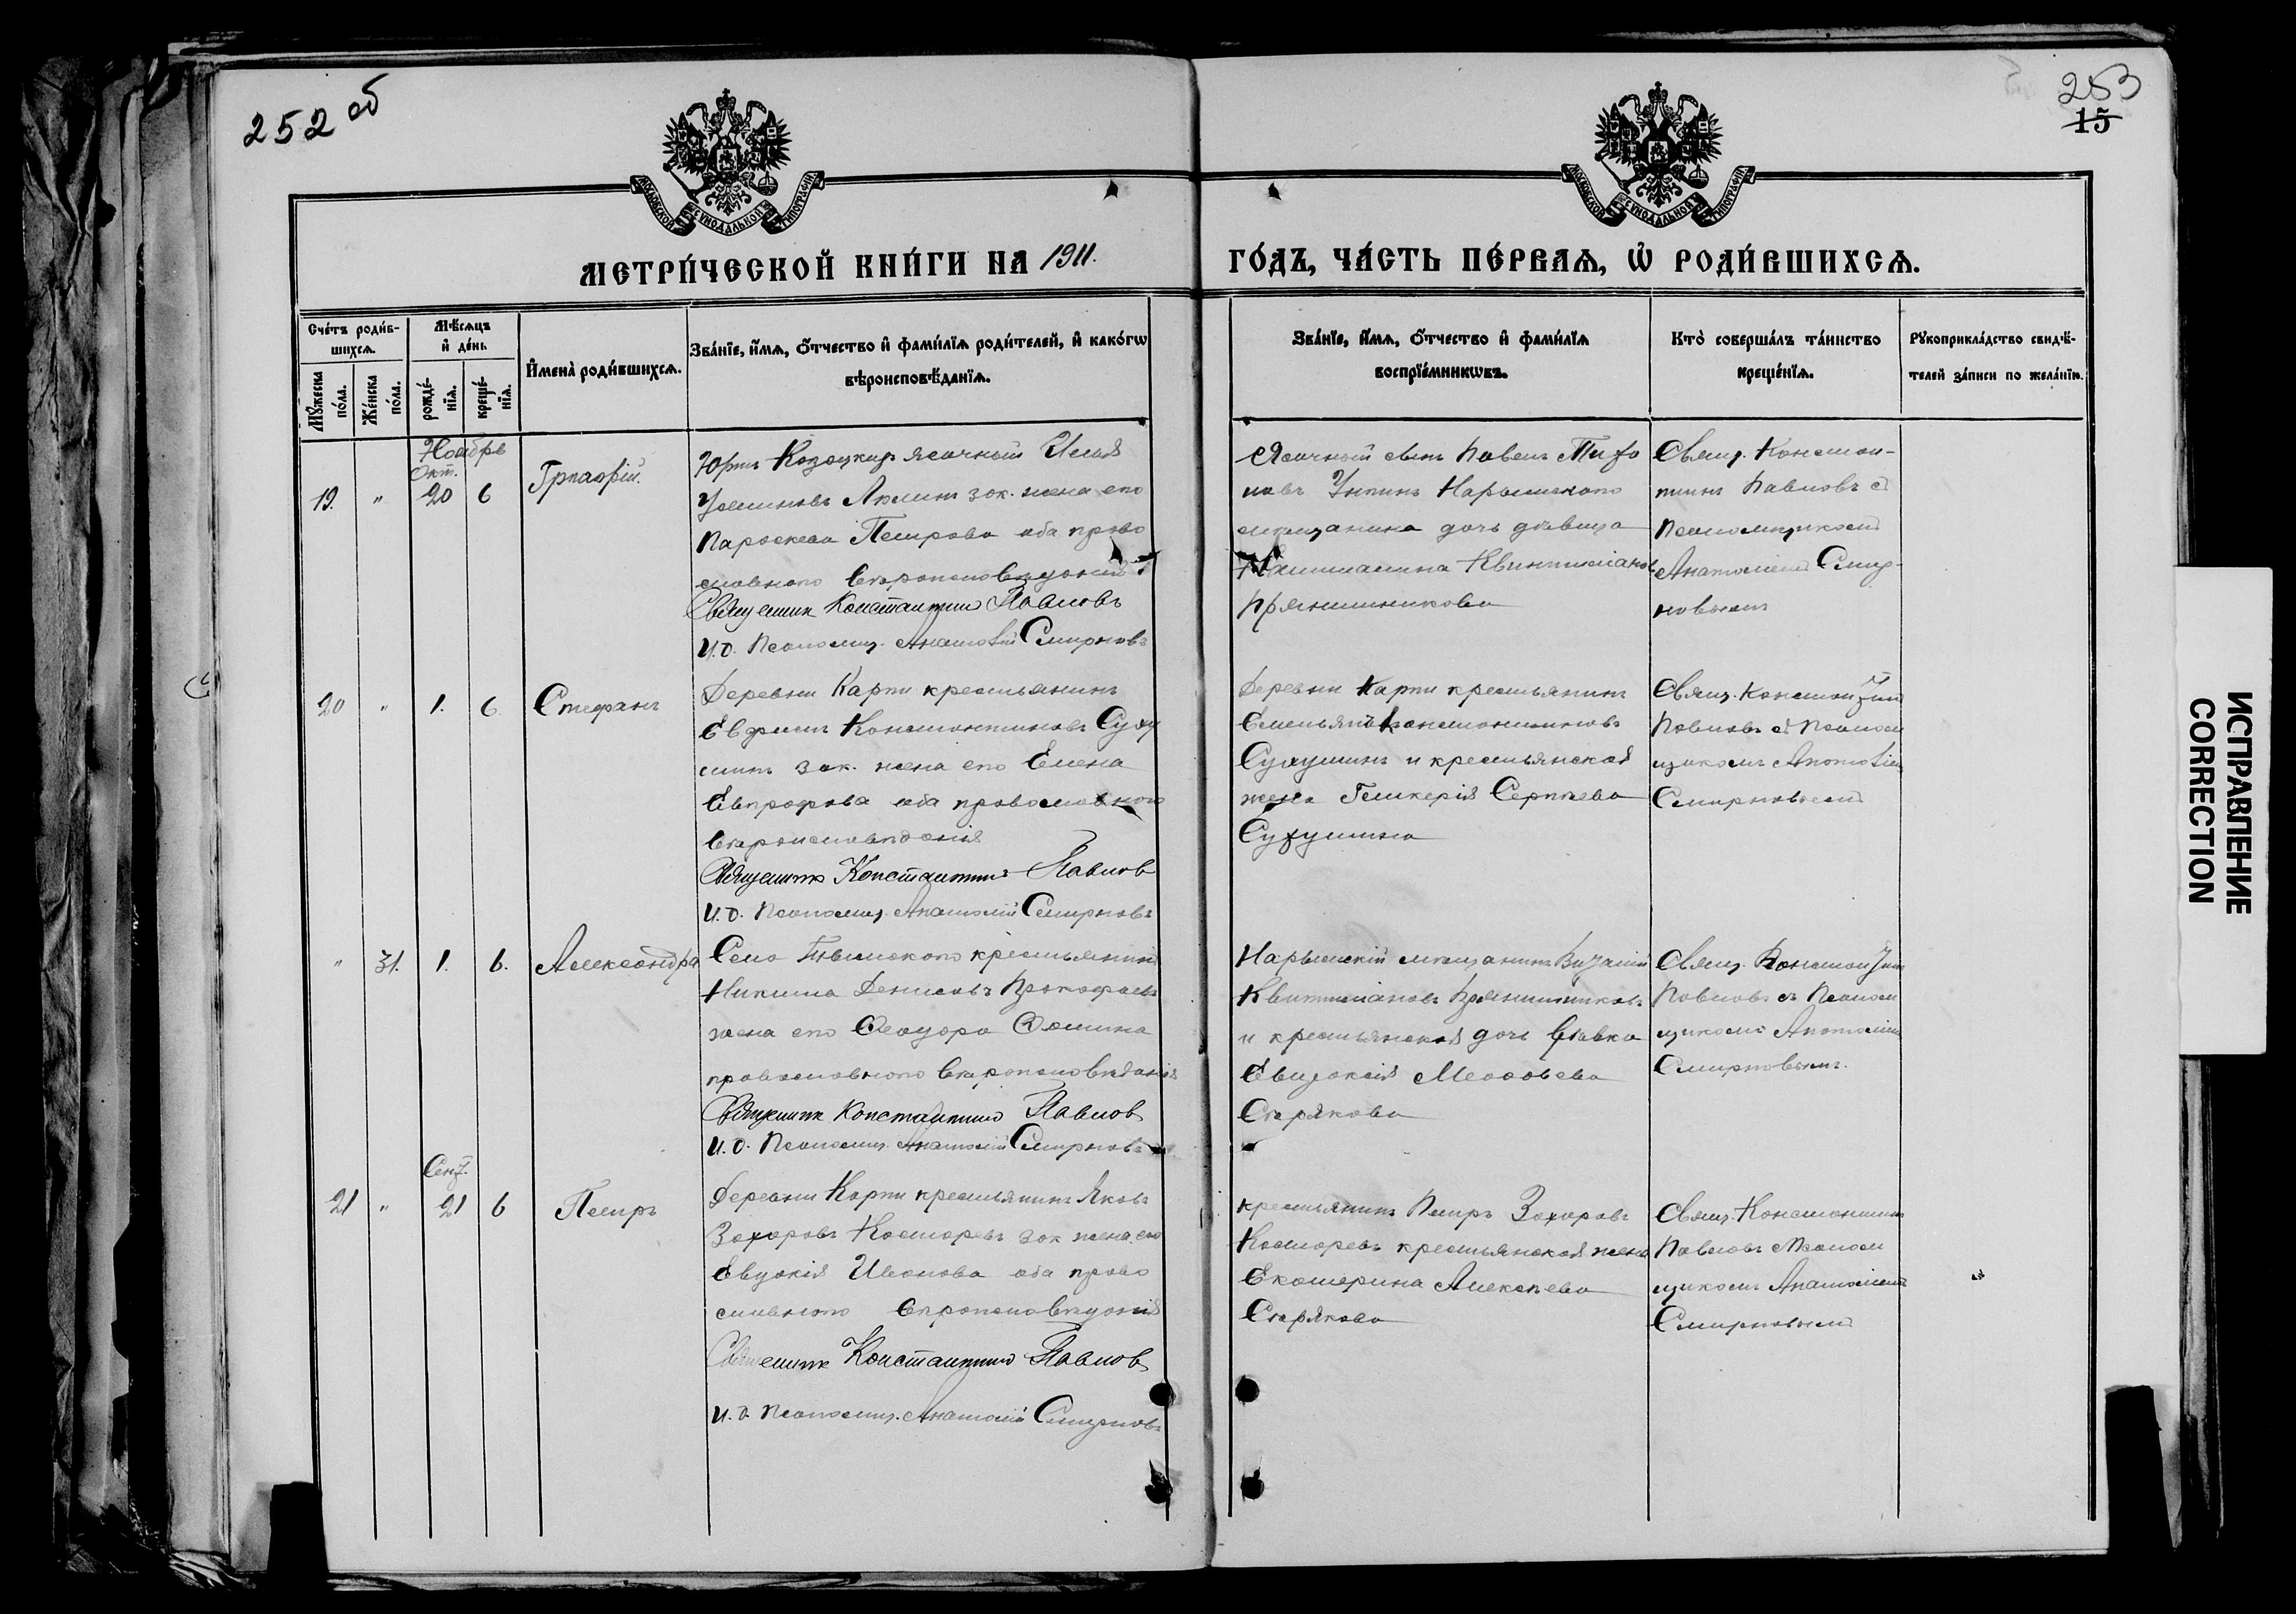 252 об
253
15
МОСКОВСКОЙ СѴНОДАЛЬНОЙ ТИПОГРАФІИ
МОСКОВСКОЙ СѴНОДАЛЬНОЙ ТИПОГРАФІИ
МЕТРИ́ЧЕСКОЙ КНИ́ГИ НА 1911.
ГО́ДЪ, ЧА́СТЬ ПЕ́РВАѦ, Ѿ РОДИ́ВШИХСѦ.
Сче́тъ роди́в-
шихсѧ.
Мꙋ́жеска
по́ла.
Же́нска
по́ла.
Мѣ́сѧцъ
и҆ де́нь
рожде́-
нїѧ.
креще́-
нїѧ.
И҆мена̀ роди́вшихсѧ.
Зва́нїе, и҆́мѧ, ѻ҆́тчество и҆ фами́лїѧ роди́телей, и҆ како́гѡ
вѣроисповѣ́данїѧ.
Зва́нїе, и҆́мѧ, ѻ҆́тчество и҆ фами́лїѧ
воспрїе́мникѡвъ.
Кто̀ соверша́лъ та́инство
креще́нїѧ.
Рꙋкоприкла́дство свидѣ́-
телей за́писи по жела́нїю.
Ноябрь
Окт.
19. " 20 6
Юртъ Ясачный
зак. жена его
Параскева Петрова оба право
славнаго вѣроисповѣданія
Священникъ Константинъ Павловъ
И.д. Псаломщ. Анатолій Смирновъ
Ясачный Павелъ
Нарымскаго
мѣщанина дочь дѣвица
Прянишникова
Свящ. Констан-
тинъ Павловъ съ
Псаломщикомъ
Анатоліемъ Смир-
новымъ
20 " 1. 6. Стефанъ
Деревни Карги крестьянинъ
Константиновъ Суху
шинъ зак. жена его Елена
оба православнаго
вѣроисповѣданія
Священникъ Константинъ Павловъ
И.д. Псаломщ. Анатолій Смирновъ
Деревни Карги крестьянинъ
Емельянъ Константиновъ
Сухушинъ и крестьянская
жена Гликерія Сергѣева
Сухушина
Свящ. Константинъ
Павловъ съ Псалом
щикомъ Анатоліемъ
Смирновымъ
" 31. 1. 6. Александра
Села крестьянинъ
Никита Денисовъ Прокофьевъ
жена его Ѳеодора Ѳомина
православнаго вѣроисповѣданія
Священникъ Константинъ Павловъ
И.д. Псаломщ. Анатолій Смирновъ
Нарымскій мѣщанинъ
Прянишниковъ
и крестьянская дочь
Евдокія
Свящ. Константинъ
Павловъ съ Псалом
щикомъ Анатоліемъ
Смирновымъ.
Сент.
21 " 21 6 Петръ
Деревни Карги крестьянинъ Яковъ
Захаровъ Костаревъ зак жена его
Евдокія Иванова оба право
славнаго вѣроисповѣданія
Священникъ Константинъ Павловъ
И.д. Псаломщ. Анатолій Смирновъ
крестьянинъ Петръ Захаровъ
Костаревъ крестьянская жена
Екатерина Алексѣева
Свящ. Константинъ
Павловъ съ Псалом
щикомъ Анатоліемъ
Смирновымъ
ИСПРАВЛЕНИЕ
CORRECTION